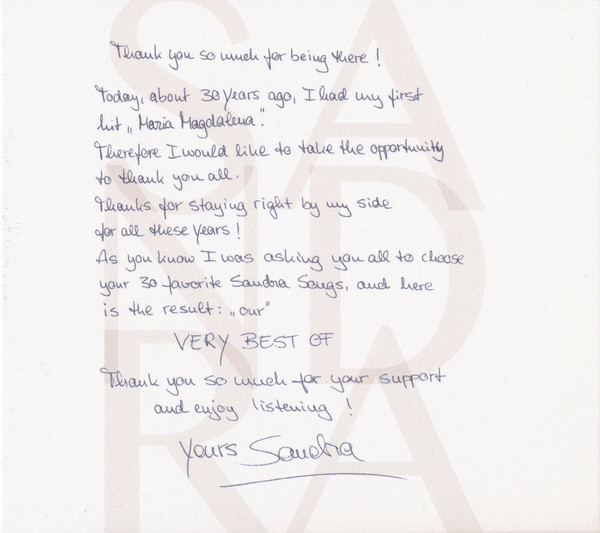 Thank you so much for being there !
Today, about 30 years ago, I had my first
hit „Maria Magdalena".
Therefore I would like to take the opportunity
to thank you all.
Thanks for staying right by my side
for all these years !
As you know I was asking you all to choose
your 30 favorite Sandra Songs, and here
is the result: „our"
VERY BEST OF
Thank you so much for your support
and enjoy listening !
yours Sandra
SA
ND
RA